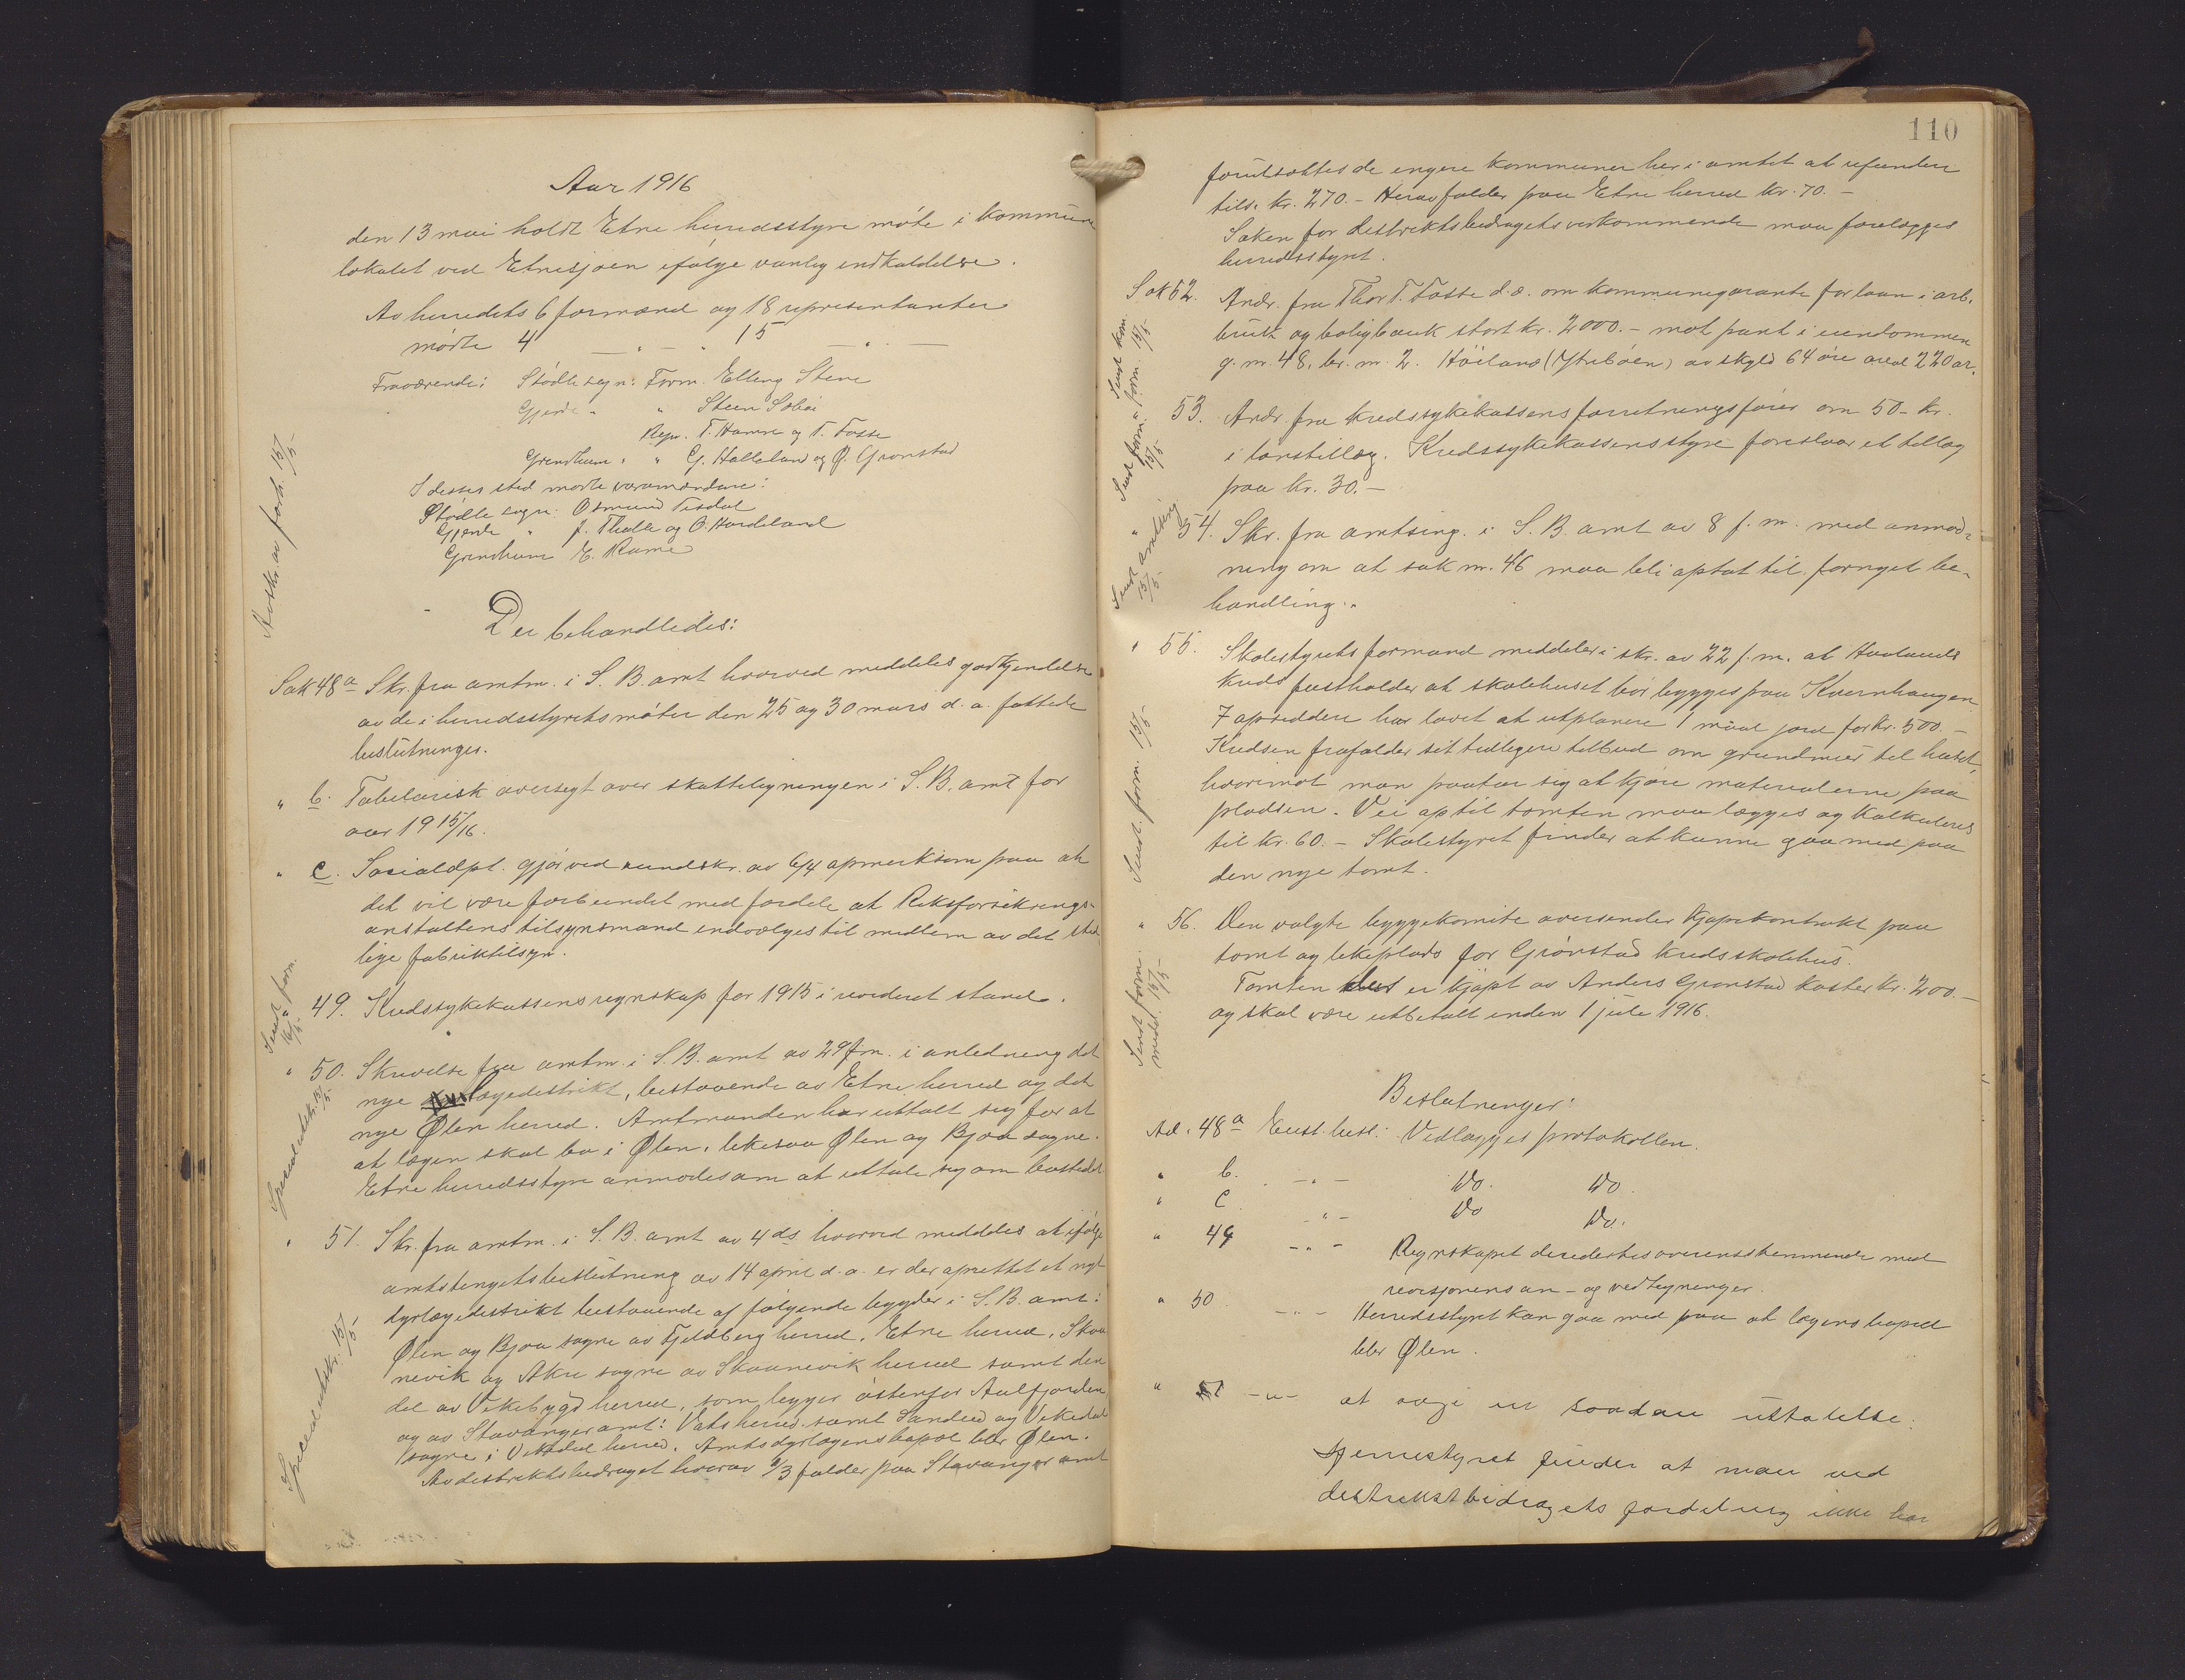 Aar 1916
den 13 mai holdt Etne herredsstyre møte i kommune
lokalet ved Etnesjøen ifølge vanlig indkaldelse.
Av herredets 6 formænd og 18 representanter
møtte 4 — " — " 15 — " —
Fraværende: Stødle sogn: Form. Elling Stene
Gjerde " " Steen Sæbø
Repr. T. Hamre og T. Fosse
Grindheim " " G. Halleland og Ø. Grønstad
I disses sted møtte varamændene:
Stødle sogn: Osmund Tesdal
Gjerde " J. Tholle og O. Hardeland
Grindheim E. Rame
Der behandledes:
Avskr. av forh. 15/5
Sak 48a Skr. fra amtm. i S. B. amt hvorved meddeles godkjendelse
av de i herredsstyrets møter den 25 og 30 mars d. a. fattede
beslutninger.
" b. Tabelarisk oversegt over skatteligningen i S. B. amt for
aar 1915/16.
" c. Socialdpt. gjør ved rundskr. av 6/4 opmerksom paa at
det vil være forbundet med fordele at Riksforsikrings-
anstaltens tilsynsmand indvælges til medlem av det sted
lige fabriktilsyn.
Sendt form. 16/5
" 49. Kredssykekassens regnskap for 1915 i revideret stand.
" 50. Skrivelse fra amtm. i S. B. amt av 29 f.m. i anledning det
nye lægedistrikt, bestaaende av Etne herred og det
nye Ølen herred. Amtmanden har uttalt sig for at
at lægen skal bo i Ølen, likesaa Ølen og Bjoa sogne.
Etne herredsstyre anmodes om at uttale sig om bostedet
Special utskr. 15/5
" 51. Skr. fra amtm. i S. B. amt av 4 ds hvorved meddeles at ifølge
amtstingets beslutning av 14 april d. a. er der oprettet et nyt
dyrlægedistrikt bestaaende af følgende bygder i S. B. amt:
Ølen og Bjoa sogne av Fjeldberg herred, Etne herred, Skaa
nevik og Akre sogne av Skaanevik herred samt den
del av Vikebygd herred, som ligger østenfor Aalfjorden,
og av Stavanger amt: Vats herred samt Sandeid og Vikedal
sogne i Vikedal herred. Amtsdyrlægens bopæl blir Ølen.
Av distriktsbidraget hvorav 1/3 falder paa Stavanger amt
Special utskr. 15/5
110
forutsættes de engere kommuner her i amtet at refundere
tils. kr. 270.- Herav falder paa Etne herred kr. 70.-
Saken for distriktsbidragets vedkommende maa forelægges
herredsstyret.
Sak 52. Andr. fra Thor T. Fosse d.æ. om kommunegaranti for laan i arb.
bruk og boligbank stort kr. 2000.- mot pant i eiendommen
g. nr. 48, br. nr. 2. Høiland (Ytrebøen) av skyld 64 øre areal 220 ar.
53. Andr. fra kredssykekassens forretningsfører om 50- kr.
i lønstillæg. Kredssykekassens styre foreslaar et tillæg
paa kr. 30.-
Sendt form. 15/5
" 54. Skr. fra amtsing. i S. B. amt av 8 f. m. med anmod-
ning om at sak nr. 46 maa bli optat til fornyet be-
handling.
Sendt amtsing 15/5
" 55. Skolestyrets formand meddeler i skr. av 22 f. m. at Haalands
kreds fastholder at skolehuset bør bygges paa Kvernhaugen
7 opsiddere har lovet at utplanere 1 maal jord for kr. 500.-
Kredsen frafalder sit tidligere tilbud om grundmur til huset,
hvorimot man paatar sig at kjøre materialerne paa
pladsen. Vei op til tomten maa lægges og kalkuleres
til kr. 60.- Skolestyret finder at kunne gaa med paa
den nye tomt.
Sendt form. 15/5
" 56. Den valgte byggekomite oversender kjøpekontrakt paa
tomt og lekeplads for Grønstad kreds skolehus.
Tomten er kjøpt av Anders Grønstad koster kr. 200.-
og skal være utbetalt inden 1 jule 1916.
Sendt form. 15/5
Beslutninger:
Ad. 48a Enst. besl: Vedlægges protokollen.
" b. - " - Do. Do.
" c - " - Do Do.
" 49 - " - Regnskapet decidertes overensstemmende med
revisjonens an- og vedtegninger.
" 50 - " - Herredsstyret kan gaa med paa at lægens bopæl
blir Ølen.
" 51 - " - at avgi en saadan uttalelse:
Herredsstyret finder at man ved
distriktsbidragets fordeling ikke har